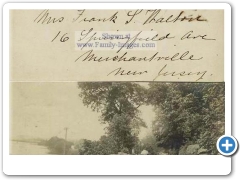 Mrs Frank S. Walton
16 Springfield Ave
© Unkefer.Net
www.Family-Images.com
Merchantville
New Jersey.